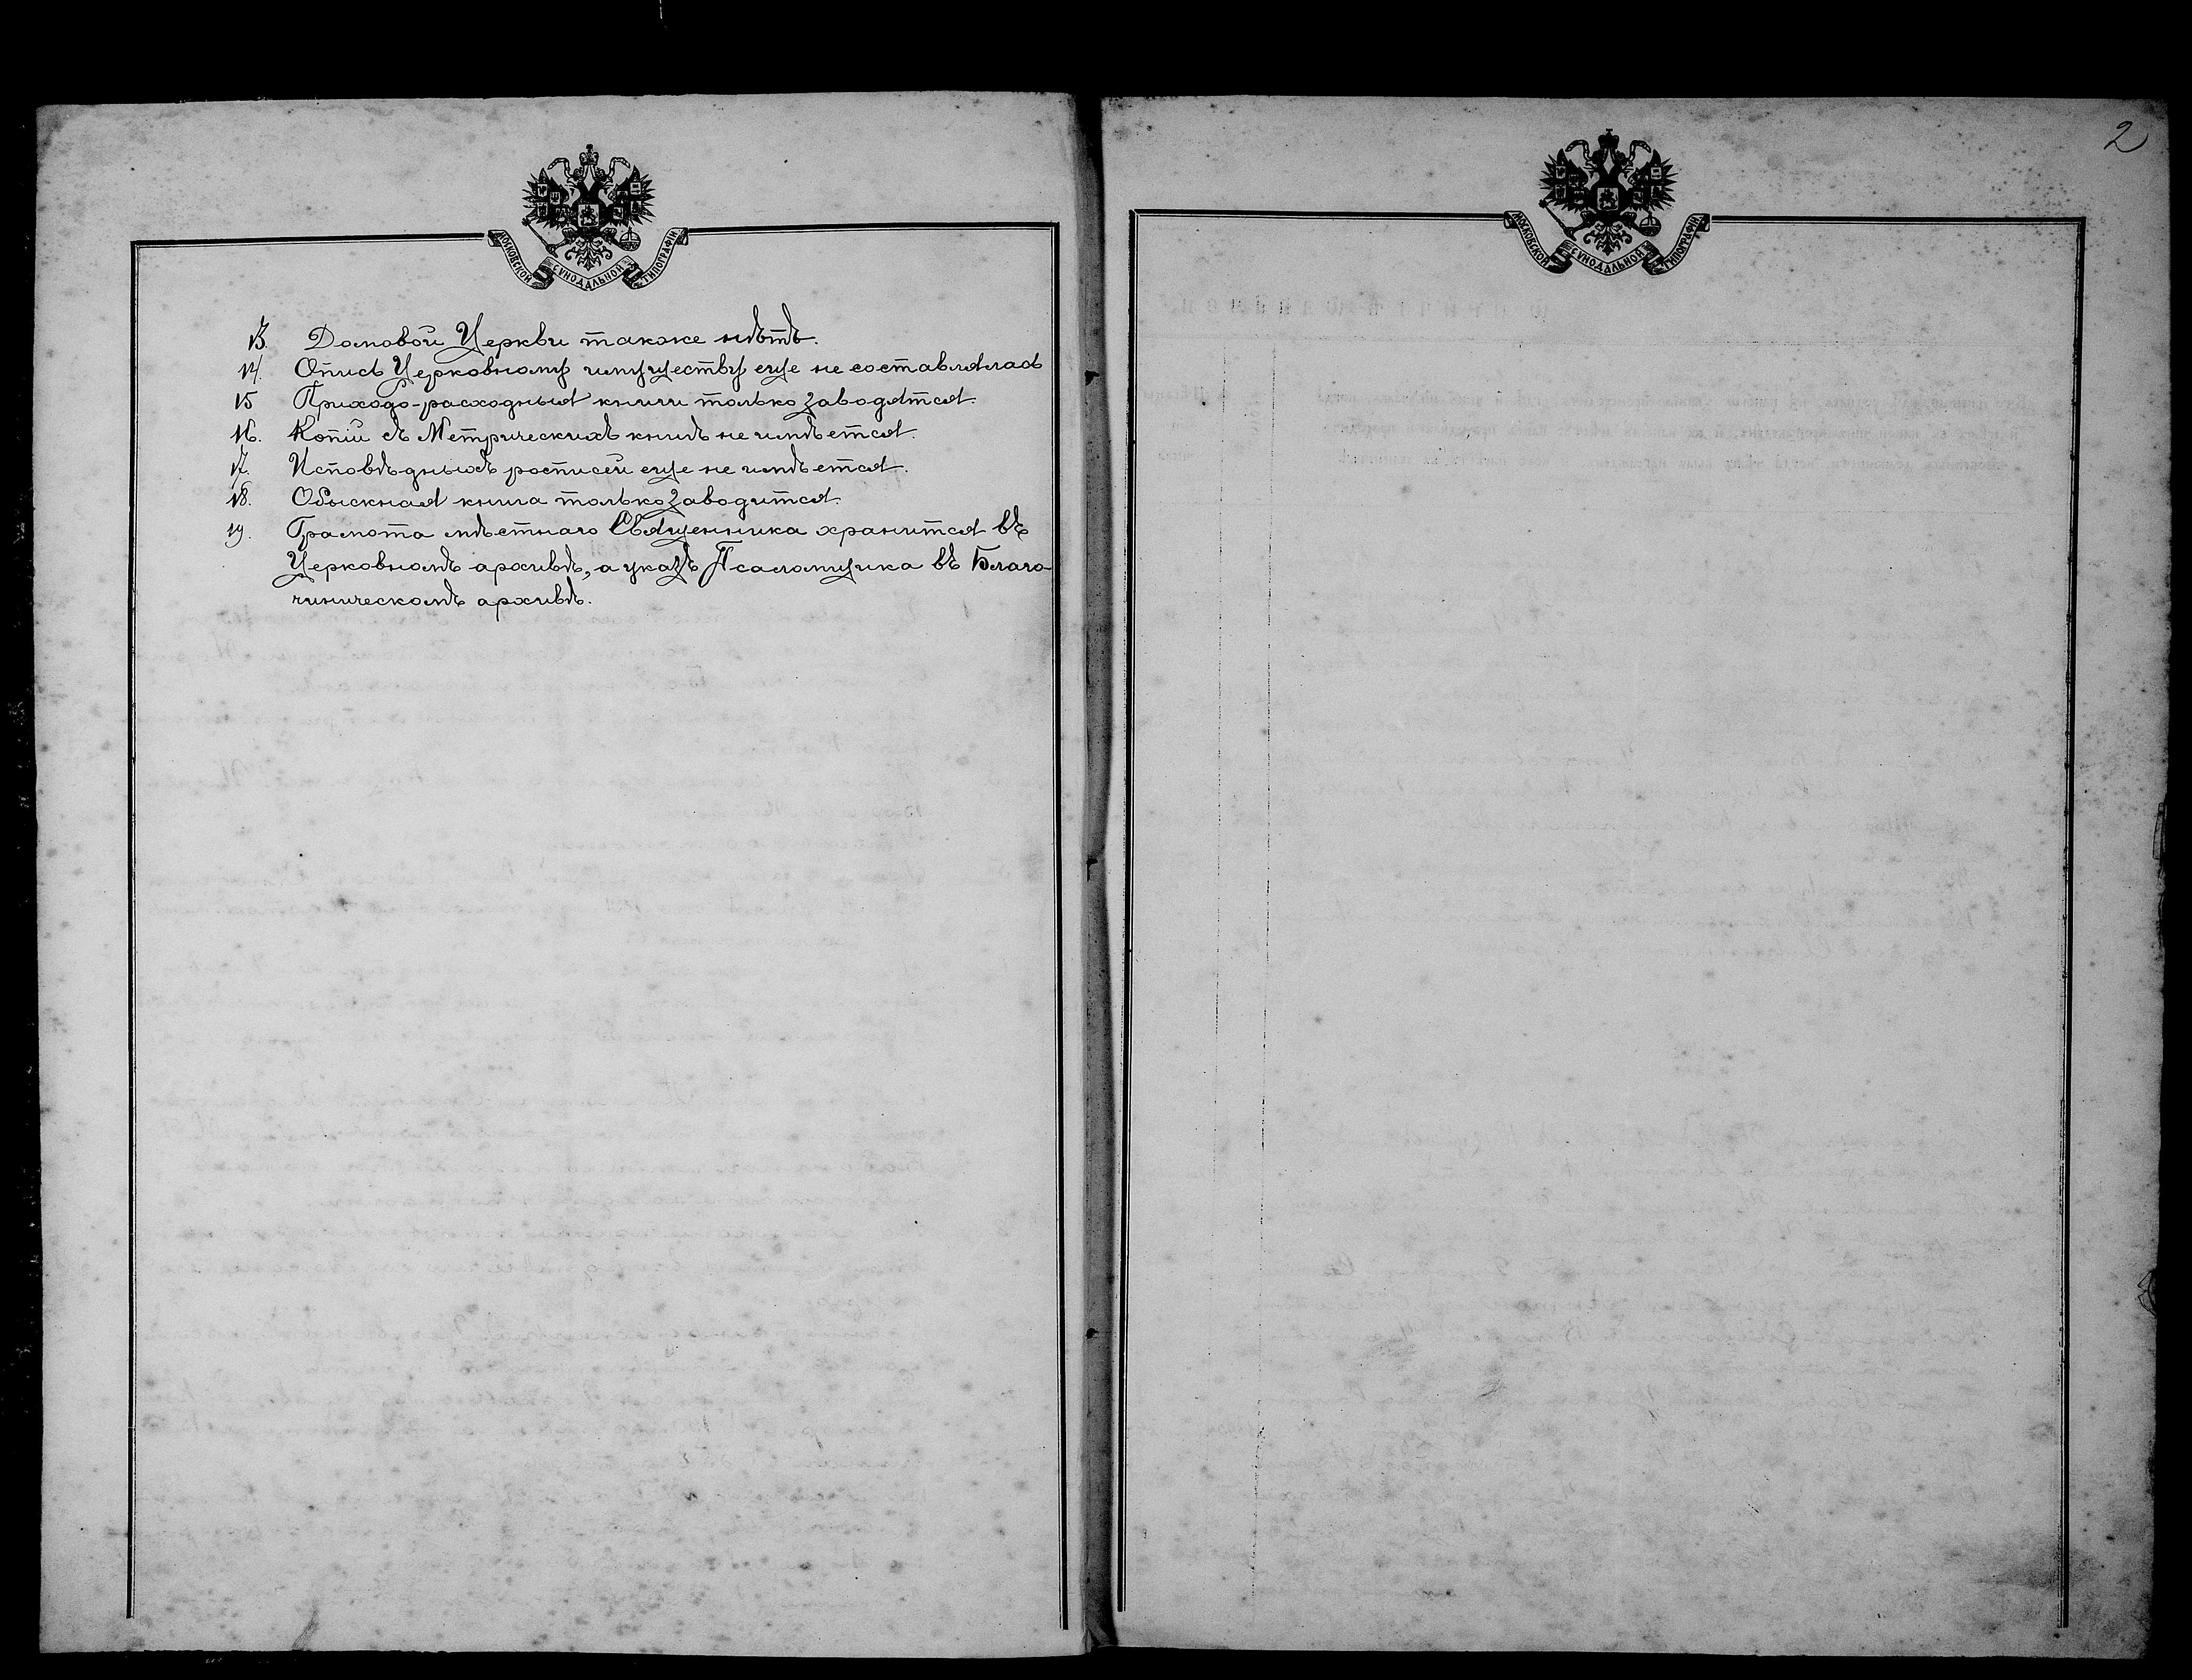 МОСКОВСКОЙ СѴНОДАЛЬНОЙ ТИПОГРАФІИ
13. Домовой Церкви также нѣтъ.
14. Опись Церковному имуществу еще не составлялась
15 Приходо-расходныя книги только заводятся.
16. Копій съ Метрическихъ книгъ не имѣется.
17. Исповѣдныхъ росписей еще не имѣется.
18. Обыскная книга только заводится.
19. Грамота мѣстнаго Священника хранится въ
Церковномъ архивѣ, а указъ Псаломщика въ Благо-
чинническомъ архивѣ.
2
МОСКОВСКОЙ СѴНОДАЛЬНОЙ ТИПОГРАФІИ